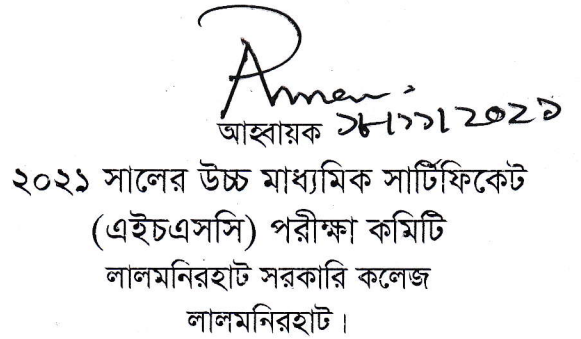 আহ্বায়ক
২০২১ সালের উচ্চ মাধ্যমিক সার্টিফিকেট
(এইচএসসি) পরীক্ষা কমিটি
লালমনিরহাট সরকারি কলেজ
লালমনিরহাট।